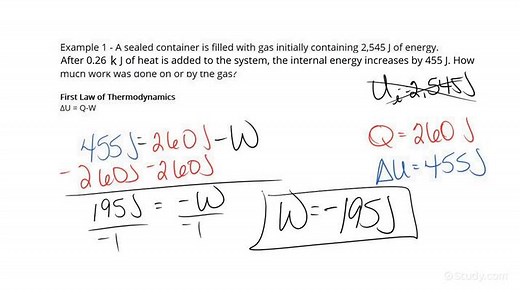 Example 1 - A sealed container is filled with gas initially containing 2,545 J of energy.
After 0.26 k J of heat is added to the system, the internal energy increases by 455 J. How
much work was done on or by the gas?
Ui=2,545J
First Law of Thermodynamics
ΔU = Q-W
Q=260J
ΔU=455J
455J=260J-W
-260J -260J
195J = -W
-1 -1
W=-195J
Study.com